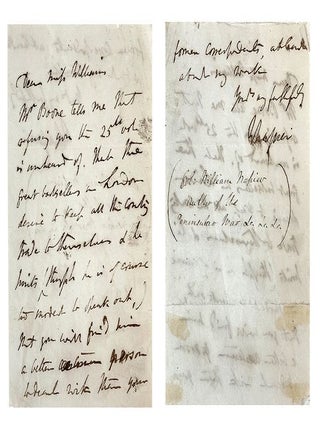 Dear Miss Williams
Mr Boone tells me that
refusing you the 25th vol
is unheard of. That the
great booksellers in London
desire to keep all the country
trade to themselves & he
hints (though he is of course
too modest to speak out,)
that you will find him
a better person
to deal with than your
former correspondents at London
about my work
Yrs faithfully
W Napier
(Col. William Napier
author of the
Peninsular War &c. &c. &c.)